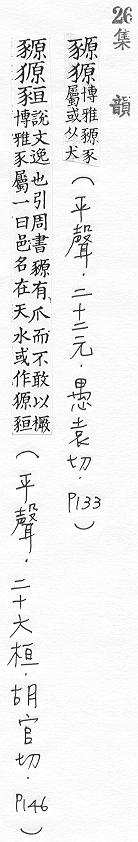 26 集韻
豲獂博雅豲豕屬或从犬(平聲.二十二元.愚袁切.P133)
豲獂說文逸也引周書豲有爪而不敢以橛博雅豕屬一曰邑名在天水或作獂(平聲.二十六桓.胡官切.P146)